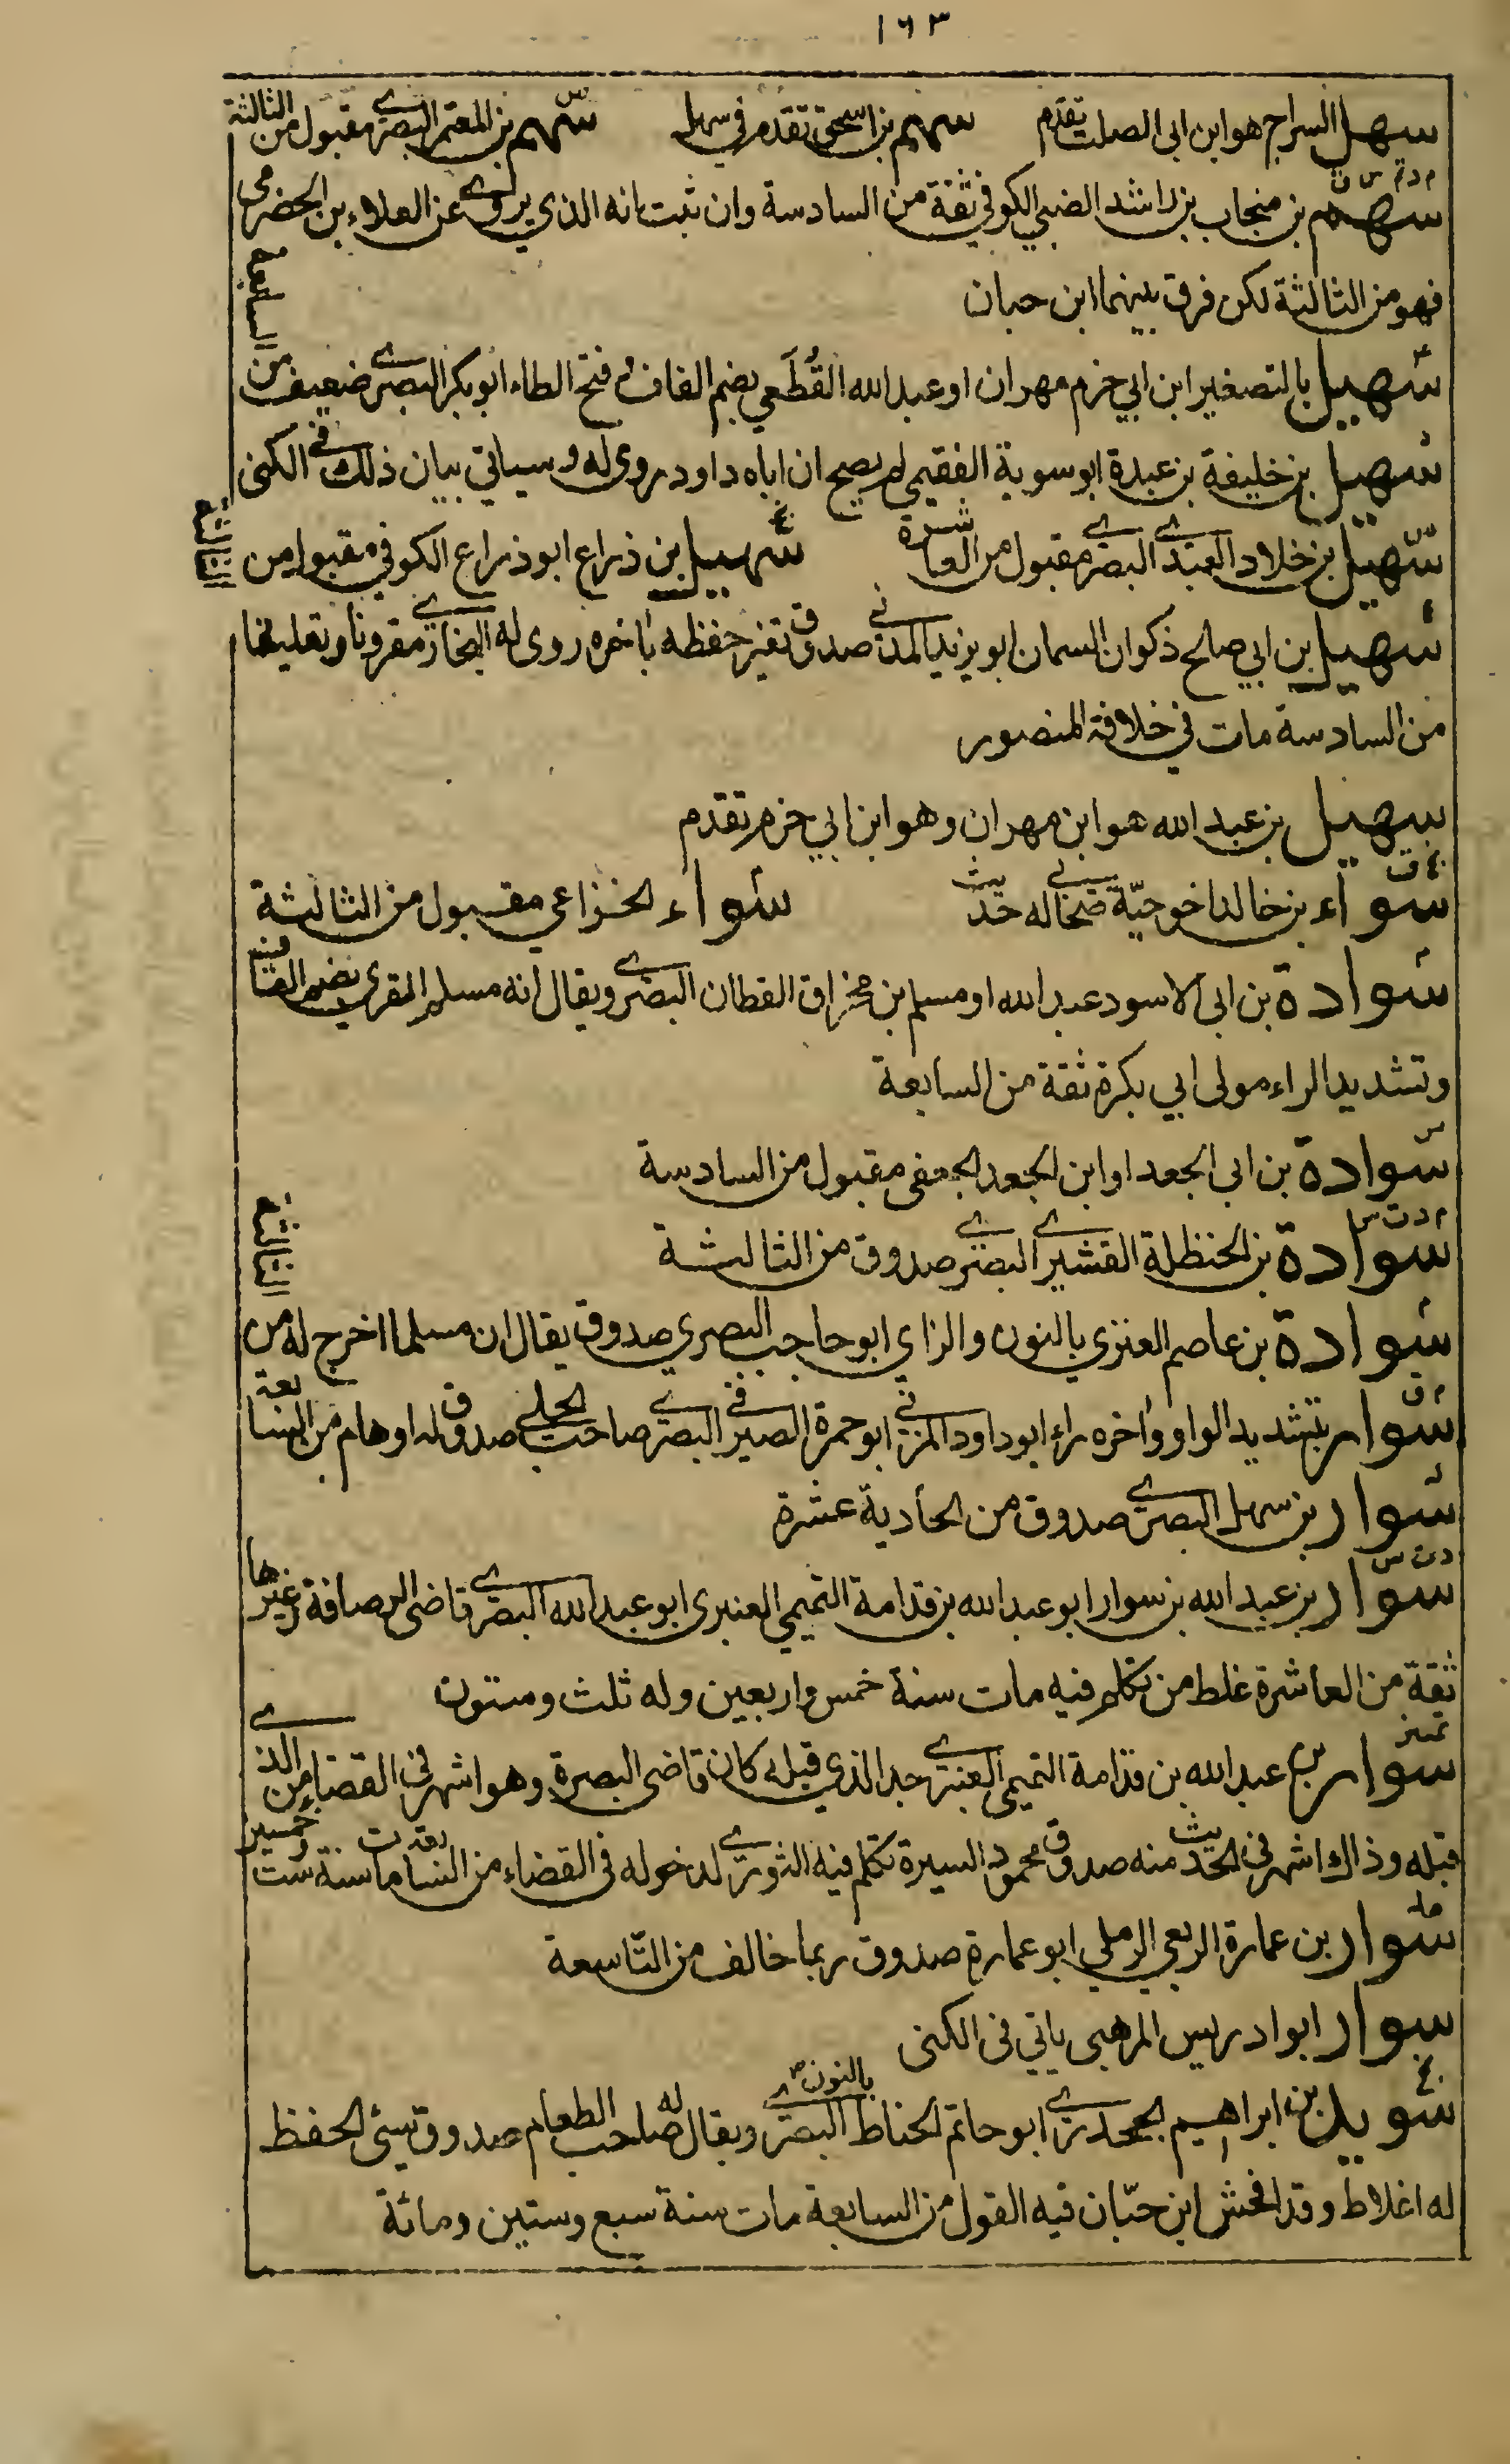 ١٦٣
سهل السراج هو ابن ابى الصلت تقدم سهم بن اسحق تقدم فى سهل سهم بن المعتمر البصرى مقبول من الثالثة
م د تم س ق
سهم بن منجاب بن راشد الضبي الكوفي ثقة من السادسة وان ثبت انه الذي يروى عن العلاء بن الحضرمى
فهو من الثالثة لكن فرق بينهما ابن حبان
سهيل بالتصغير ابن ابي حزم مهران او عبد الله القُطَعي بضم القاف و فتح الطاء ابو بكر البصرى ضعيف من السابعة
سهيل بن خليفة بن عبدة ابو سوية الفقيمي لم يصح ان اباه داود روى له وسياتي بيان ذلك فى الكنى
سهيل بن خلاد العبدى البصرى مقبول من العاشرة سهيل بن ذراع ابو ذراع الكوفي مقبول من الثالثة
سهيل بن ابي صالح ذكوان السمان ابو يزيد المدنى صدوق تغير حفظه باخره روى له البخارى مقرونا وتعليقا
من السادسة مات في خلافة المنصور
سهيل بن عبد الله هو ابن مهران وهو ابن ابي حزم تقدم
سواء بن خالد اخو حبّة صحابى له حديث سواء الخزاعي مقبول من الثالثة
سوادة بن ابى الاسود عبد الله او مسلم بن مخراق القطان البصرى ويقال انه مسلم المقري بضم القاف
وتشديد الراء مولى ابي بكرة ثقة من السابعة
س
سوادة بن ابى الجعد او ابن الجعد الجعفى مقبول من السادسة
م د ت س
سوادة بن الحنظلة القشيرى البصرى صدوق من الثالثة
سوادة بن عاصم العنزي بالنون والزاي ابو حاجب البصري صدوق يقال ان مسلما اخرج له من الثالثة
سوار بتشديد الواو واخره راء ابو داود المزنى ابو حمزة الصيرفى البصرى صاحب الحلى صدوق له اوهام من السابعة
سوار بن سهل البصرى صدوق من الحادية عشرة
د ت س
سوار بن عبد الله بن سوار ابو عبد الله بن قدامة التميمي العنبرى ابو عبد الله البصرى قاضى الرصافة وغيرها
ثقة من العاشرة غلط من تكلم فيه مات سنة خمس واربعين وله ثلث وستون
تمييز
سوار بن عبد الله بن قدامة التميمي العنبرى جد الذي قبله كان قاضى البصرة وهو اشهر في القضاء من الذى
قبله وذاك اشهر في الحديث منه صدوق محمود السيرة تكلم فيه الثورى لدخوله فى القضاء من السابعة مات سنة ست وخمسين
سوار بن عمارة الربعي الرملي ابو عمارة صدوق ربما خالف من التاسعة
سوار ابو ادريس المرهبى ياتي فى الكنى
سويد بن ابراهيم الجحدرى ابو حاتم الحناط بالنون البصرى ويقال له صاحب الطعام صدوق سيئ الحفظ
له اغلاط وقد افحش ابن حبّان فيه القول من السابعة مات سنة سبع وستين ومائة